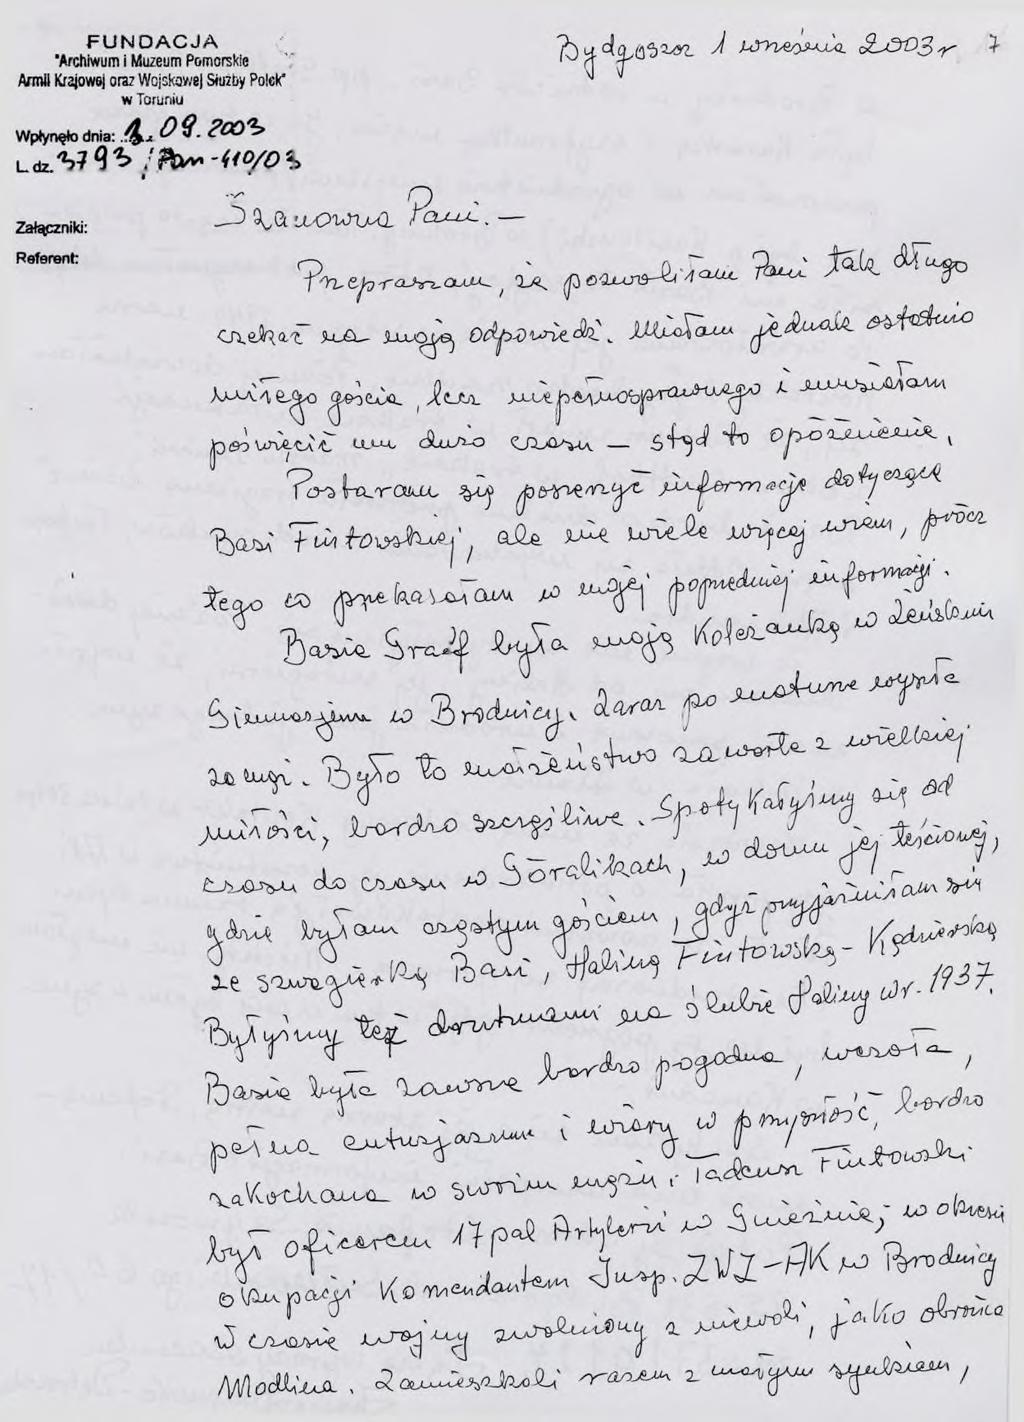 FUNDACJA
"Archiwum i Muzeum Pomorskie
Armii Krajowej oraz Wojskowej Służby Polek"
w Toruniu
Wpłynęło dnia: 3.09.2003
L. dz. 3793 / Pom-410/03
Załączniki:
Referent:
Bydgoszcz 1 września 2003 r. 7
Szanowna Pani. —
Przepraszam, że pozwoliłam Pani tak długo
czekać na moją odpowiedź. Miałam jednak ostatnio
miłego gościa, lecz niepełnosprawnego i musiałam
poświęcić mu dużo czasu — stąd to opóźnienie.
Postaram się poszerzyć informacje dotyczące
Basi Fintowskiej, ale nie wiele więcej wiem, prócz
tego co przekazałam w mojej poprzedniej informacji.
Basia Graef była moją Koleżanką w Żeńskim
Gimnazjum w Brodnicy. Zaraz po maturze wyszła
za mąż. Było to małżeństwo zawarte z wielkiej
miłości, bardzo szczęśliwe. Spotykałyśmy się od
czasu do czasu w Góralikach, w domu jej teściowej,
gdzie byłam częstym gościem, gdyż przyjaźniłam się
ze szwagierką Basi, Haliną Fintowską - Kędzierską
Byłyśmy też druhnami na ślubie Haliny w r. 1937.
Basia była zawsze bardzo pogodna, wesoła,
pełna entuzjazmu i wiary w przyszłość, bardzo
zakochana w swoim mężu. Tadeusz Fintowski
był oficerem 17 pal Artylerii w Gnieźnie; w okresie
okupacji Komendantem Insp. ZWZ-AK w Brodnicy
W czasie wojny zwolniony z niewoli, jako obrońca
Modlina. Zamieszkali razem z małym synkiem,